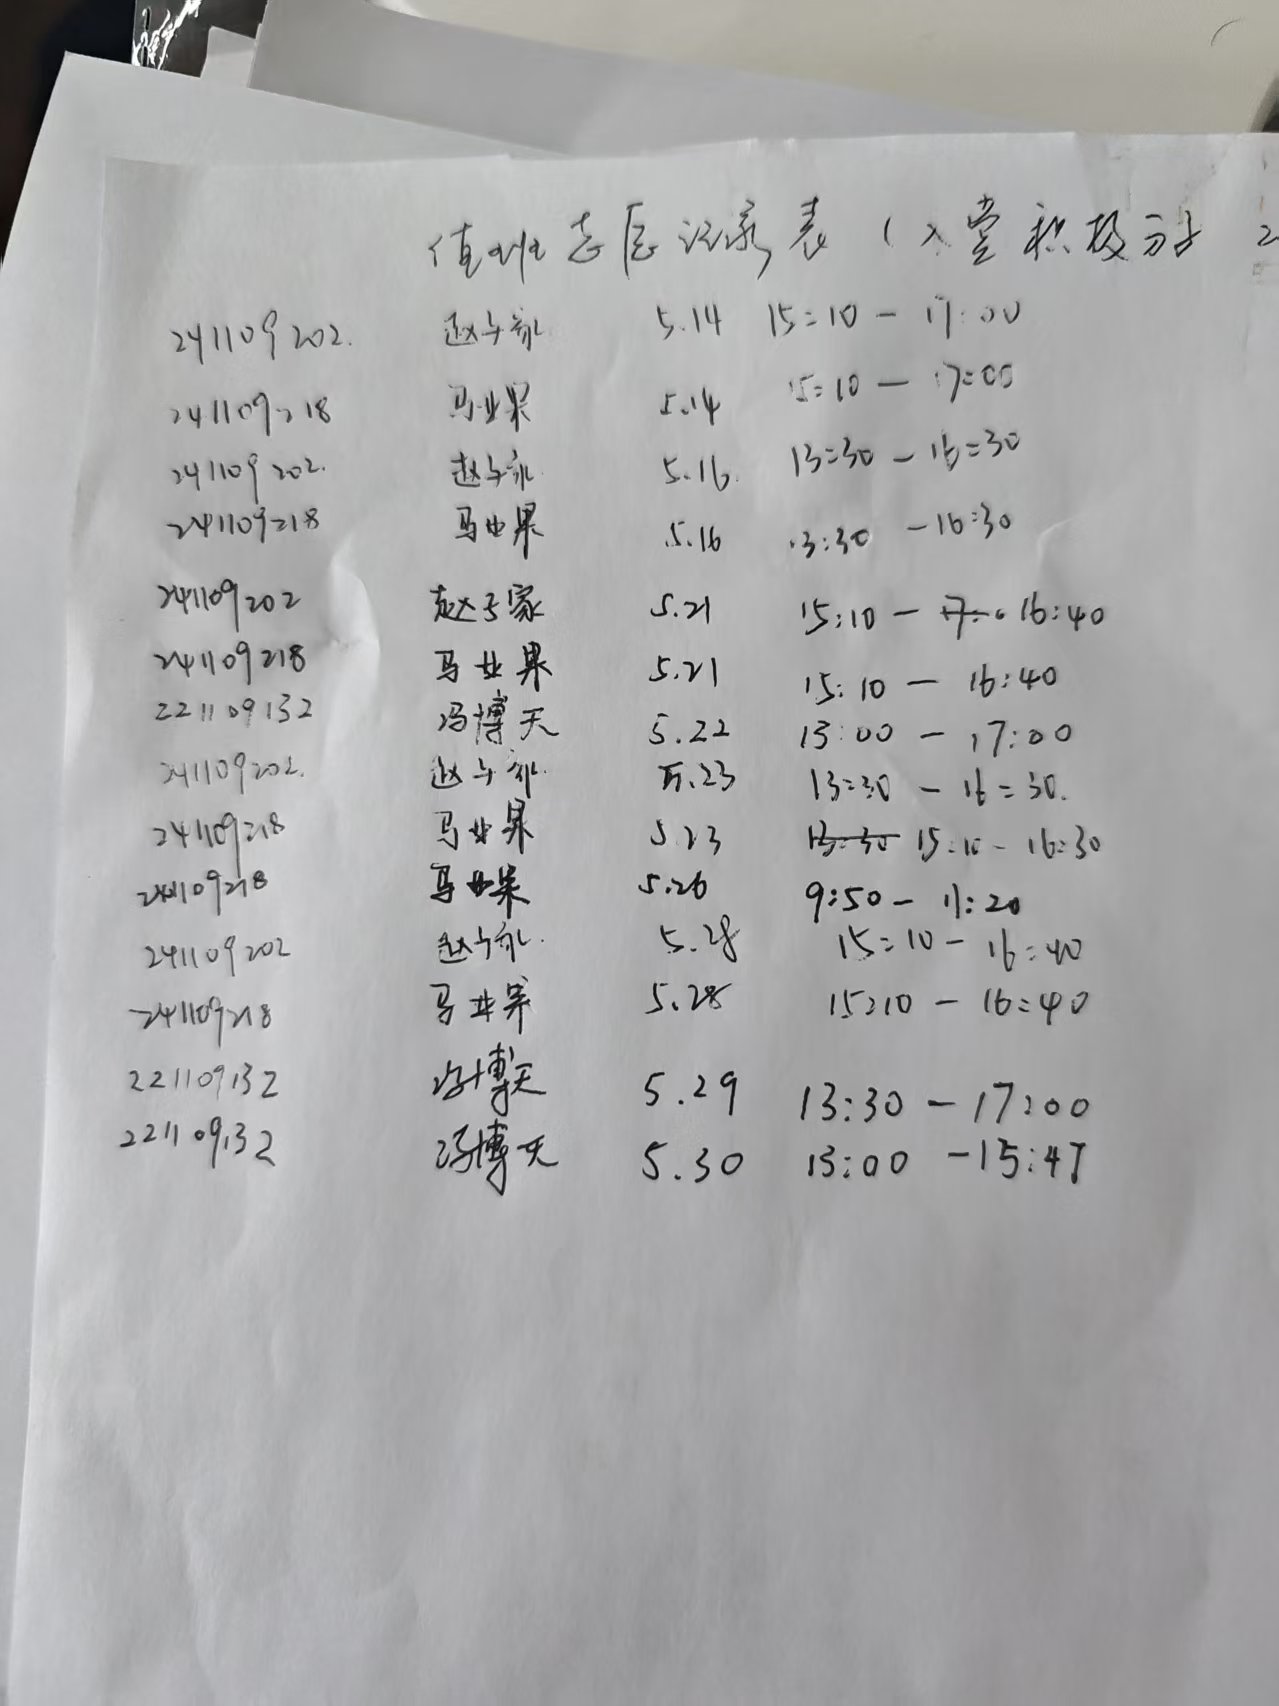 值班志愿记录表（入党积极分子 2
241109202. 赵子家 5.14 15:10 - 17:00
241109218 马业果 5.14 15:10 - 17:00
241109202. 赵子家 5.16. 13:30 - 16:30
241109218 马业果 5.16 13:30 - 16:30
241109202 赵子家 5.21 15:10 - 16:40
241109218 马业果 5.21 15:10 - 16:40
221109132 冯博天 5.22 13:00 - 17:00
241109202. 赵子家. 5.23 13:30 - 16:30.
241109218 马业果 5.23 13:30 15:10 - 16:30
241109218 马业果 5.26 9:50 - 11:20
241109202 赵子家. 5.28 15:10 - 16:40
241109218 马业果 5.28 15:10 - 16:40
221109132 冯博天 5.29 13:30 - 17:00
221109132 冯博天 5.30 13:00 - 15:47